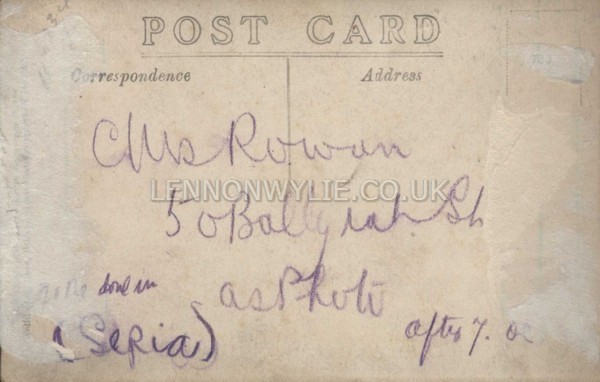 POST CARD
Correspondence Address
Mrs Rowan
LENNONWYLIE.CO.UK
50 Ballyrah St
as Photo
done in
(Sepia) after 7.